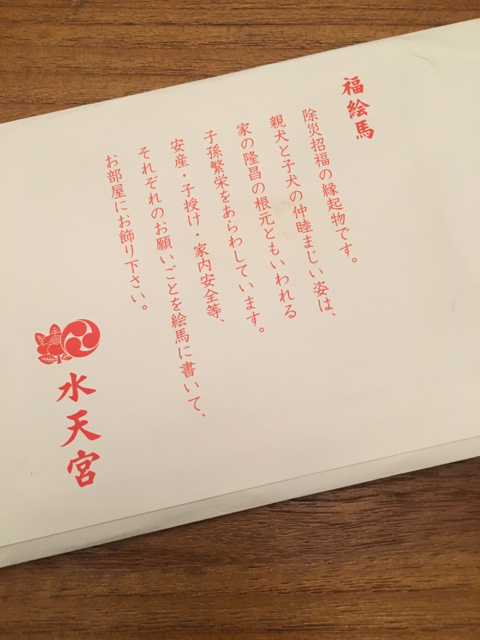 福絵馬
除災招福の縁起物です。
親犬と子犬の仲睦まじい姿は、
家の隆昌の根元ともいわれる
子孫繁栄をあらわしています。
安産・子授け・家内安全等、
それぞれのお願いごとを絵馬に書いて、
お部屋にお飾り下さい。
水天宮